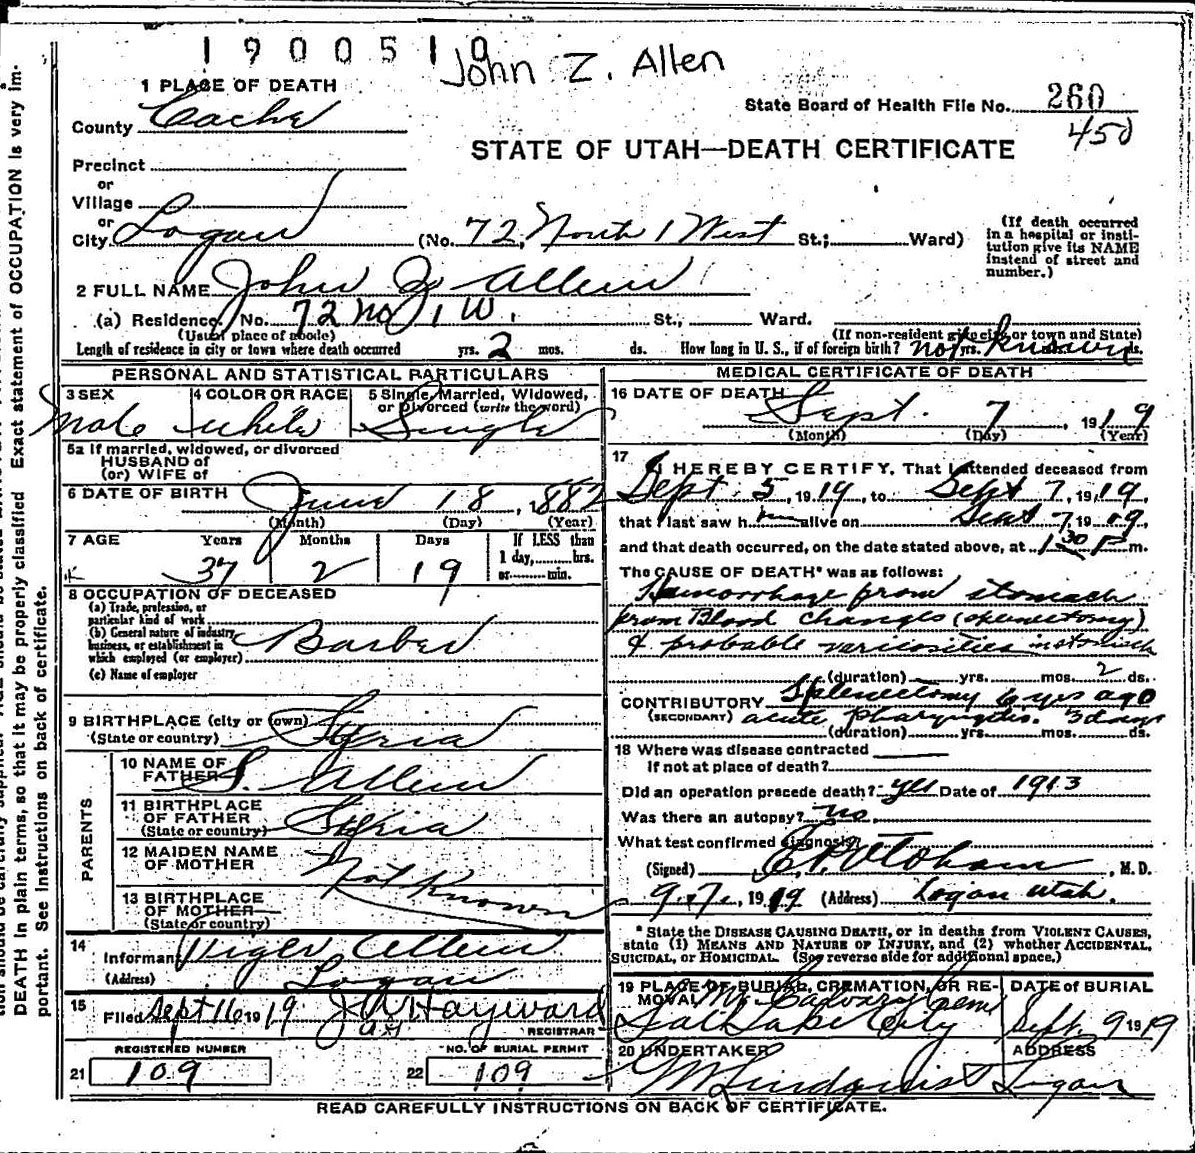 1900510
John Z. Allen
1 PLACE OF DEATH
County Cache
State Board of Health File No. 260
450
STATE OF UTAH—DEATH CERTIFICATE
Precinct
or
Village
or
City Logan (No. 72 North 1 West St.; Ward)
(If death occurred in a hospital or institution give its NAME instead of street and number.)
2 FULL NAME John Z Allen
(a) Residence. No. 72 No 1 W. St., Ward.
(Usual place of abode) (If non-resident give city or town and State)
Length of residence in city or town where death occurred yrs. 2 mos. ds. How long in U. S., if of foreign birth? not yrs. known ds.
PERSONAL AND STATISTICAL PARTICULARS
3 SEX Male
4 COLOR OR RACE white
5 Single, Married, Widowed, or Divorced (write the word) Single
5a If married, widowed, or divorced
HUSBAND of
(or) WIFE of
6 DATE OF BIRTH June 18, 1882
(Month) (Day) (Year)
7 AGE Years 37 Months 2 Days 19 If LESS than 1 day, hrs. or min.
8 OCCUPATION OF DECEASED
(a) Trade, profession, or particular kind of work
Barber
(b) General nature of industry, business, or establishment in which employed (or employer)
(c) Name of employer
9 BIRTHPLACE (city or town)
(State or country) Syria
PARENTS
10 NAME OF FATHER S. Allen
11 BIRTHPLACE OF FATHER (State or country) Syria
12 MAIDEN NAME OF MOTHER
Not Known
13 BIRTHPLACE OF MOTHER (State or country)
14 Informant Allen
(Address) Logan
15 Filed Sept 16 1919 Hayward
REGISTRAR
REGISTERED NUMBER
21 109
NO. OF BURIAL PERMIT
22 109
MEDICAL CERTIFICATE OF DEATH
16 DATE OF DEATH
Sept. 7, 1919
(Month) (Day) (Year)
17 I HEREBY CERTIFY, That I attended deceased from
Sept. 5, 1919, to Sept 7, 1919,
that I last saw him alive on Sept 7, 1919,
and that death occurred, on the date stated above, at 1 30 P m.
The CAUSE OF DEATH* was as follows:
Hemorrhage from stomach
from Blood changes (splenectomy)
& probable varicosities in stomach
(duration) yrs. mos. 2 ds.
CONTRIBUTORY Splenectomy 6 yrs ago
(SECONDARY) acute pharyngitis. 3 days
(duration) yrs. mos. ds.
18 Where was disease contracted
If not at place of death?
Did an operation precede death? yes Date of 1913
Was there an autopsy? no.
What test confirmed diagnosis?
(Signed) M. D.
9-7, 1919 (Address) Logan Utah.
* State the DISEASE CAUSING DEATH, or in deaths from VIOLENT CAUSES,
state (1) MEANS AND NATURE OF INJURY, and (2) whether ACCIDENTAL,
SUICIDAL, or HOMICIDAL. (See reverse side for additional space.)
19 PLACE OF BURIAL, CREMATION, OR REMOVAL Mt Calvary Cem
Salt Lake City
DATE OF BURIAL
Sept. 9 1919
20 UNDERTAKER
Lindquist
ADDRESS
Logan
READ CAREFULLY INSTRUCTIONS ON BACK OF CERTIFICATE.
DEATH in plain terms, so that it may be properly classified. Exact statement of OCCUPATION is very important. See instructions on back of certificate.